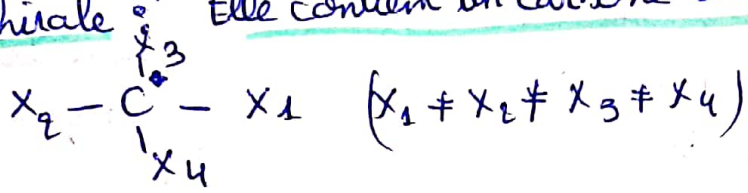 hirale : Elle contient un
X3
X2 — C — X1 (X1 ≠ X2 ≠ X3 ≠ X4)
X4